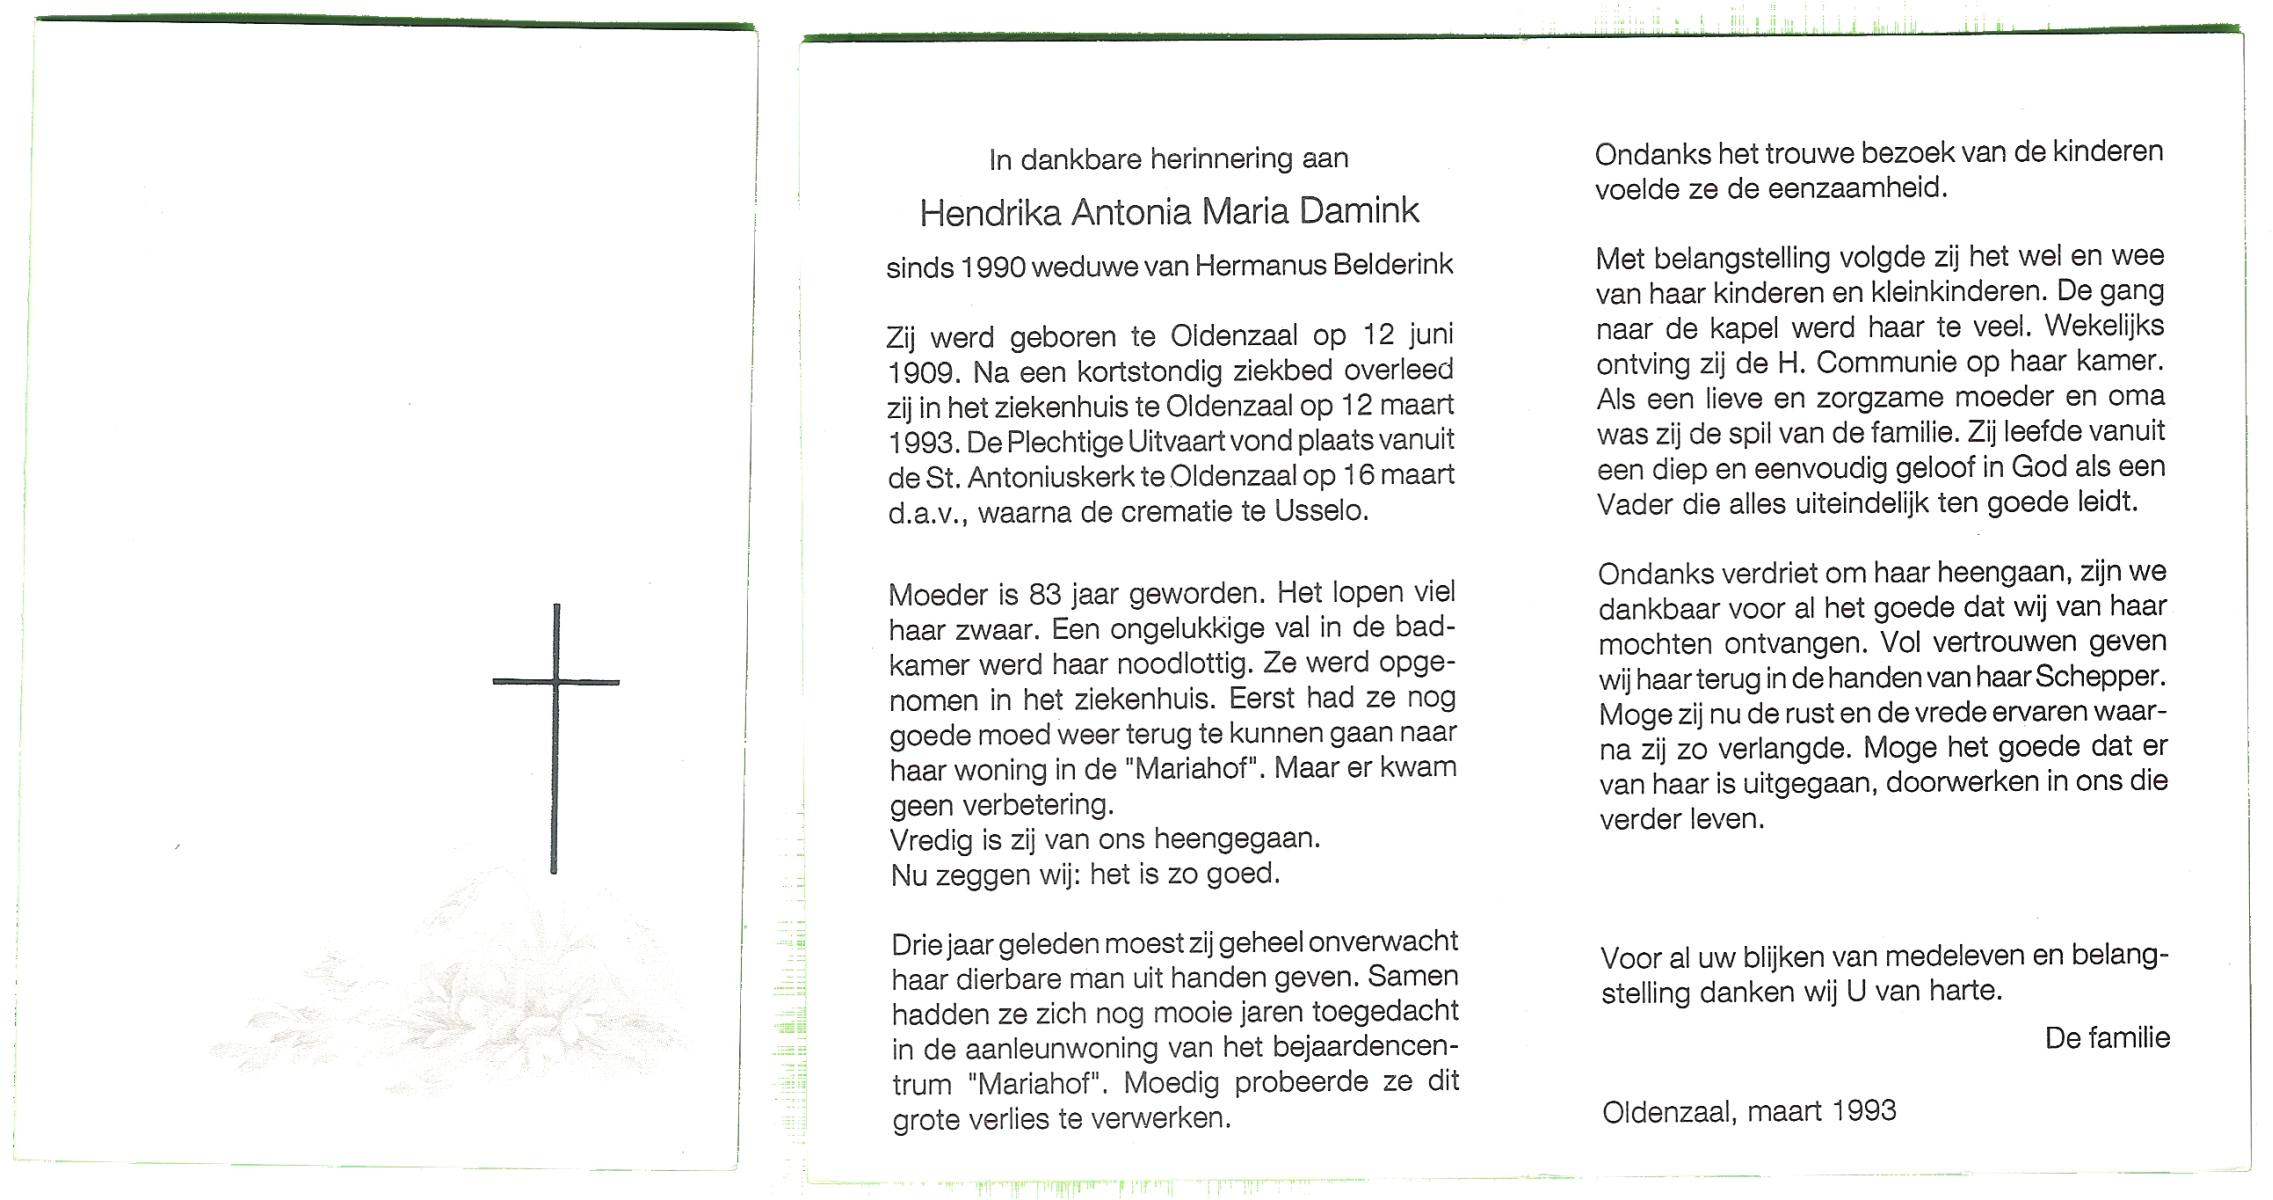 In dankbare herinnering aan
Hendrika Antonia Maria Damink
sinds 1990 weduwe van Hermanus Belderink
Zij werd geboren te Oldenzaal op 12 juni
1909. Na een kortstondig ziekbed overleed
zij in het ziekenhuis te Oldenzaal op 12 maart
1993. De Plechtige Uitvaart vond plaats vanuit
de St. Antoniuskerk te Oldenzaal op 16 maart
d.a.v., waarna de crematie te Usselo.
Moeder is 83 jaar geworden. Het lopen viel
haar zwaar. Een ongelukkige val in de bad-
kamer werd haar noodlottig. Ze werd opge-
nomen in het ziekenhuis. Eerst had ze nog
goede moed weer terug te kunnen gaan naar
haar woning in de "Mariahof". Maar er kwam
geen verbetering.
Vredig is zij van ons heengegaan.
Nu zeggen wij: het is zo goed.
Drie jaar geleden moest zij geheel onverwacht
haar dierbare man uit handen geven. Samen
hadden ze zich nog mooie jaren toegedacht
in de aanleunwoning van het bejaardencen-
trum "Mariahof". Moedig probeerde ze dit
grote verlies te verwerken.
Ondanks het trouwe bezoek van de kinderen
voelde ze de eenzaamheid.
Met belangstelling volgde zij het wel en wee
van haar kinderen en kleinkinderen. De gang
naar de kapel werd haar te veel. Wekelijks
ontving zij de H. Communie op haar kamer.
Als een lieve en zorgzame moeder en oma
was zij de spil van de familie. Zij leefde vanuit
een diep en eenvoudig geloof in God als een
Vader die alles uiteindelijk ten goede leidt.
Ondanks verdriet om haar heengaan, zijn we
dankbaar voor al het goede dat wij van haar
mochten ontvangen. Vol vertrouwen geven
wij haar terug in de handen van haar Schepper.
Moge zij nu de rust en de vrede ervaren waar-
na zij zo verlangde. Moge het goede dat er
van haar is uitgegaan, doorwerken in ons die
verder leven.
Voor al uw blijken van medeleven en belang-
stelling danken wij U van harte.
De familie
Oldenzaal, maart 1993